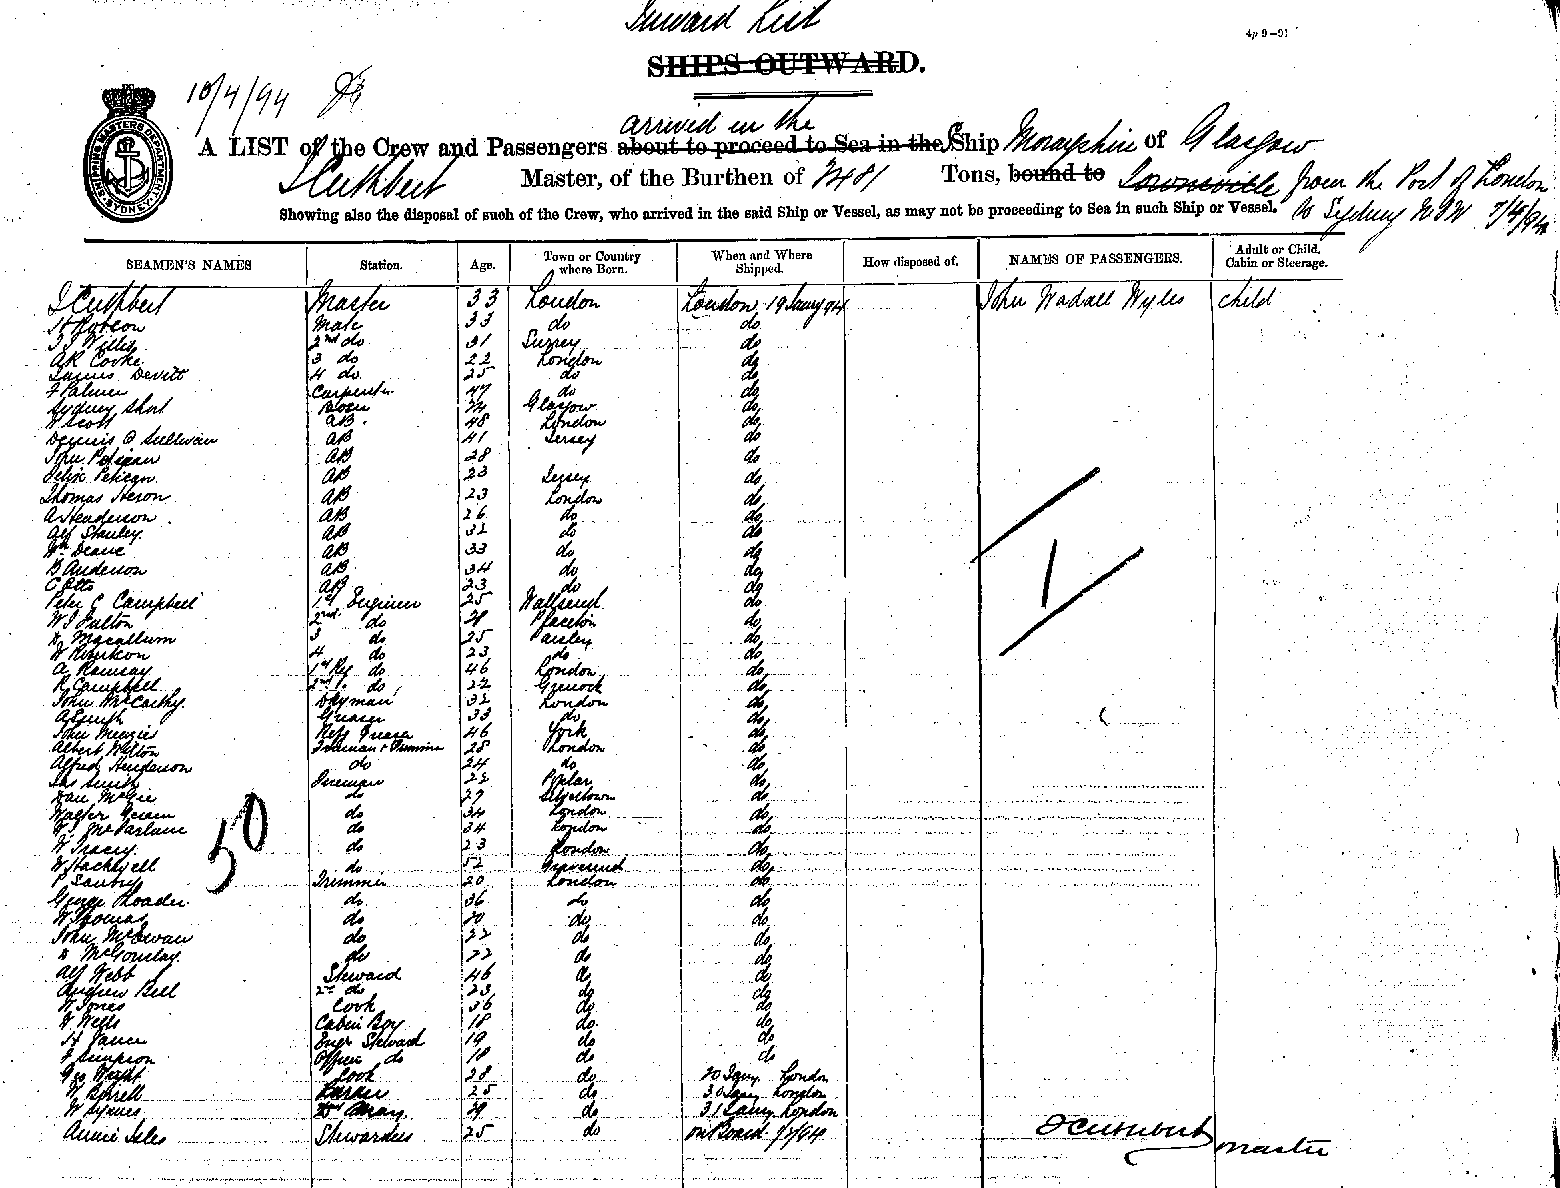 Inward List
4p 9-91
SHIPS OUTWARD.
10/4/94
SHIPPING MASTERS DEPARTMENT SYDNEY
arrived in the
A LIST of the Crew and Passengers about to proceed to Sea in the Ship Morayshire of Glasgow
Cuthbert Master, of the Burthen of 2481 Tons, bound to Townsville from the Port of London
Showing also the disposal of such of the Crew, who arrived in the said Ship or Vessel, as may not be proceeding to Sea in such Ship or Vessel. to Sydney NSW 7/4/94
SEAMEN'S NAMES Station. Age. Town or Country where Born. When and Where Shipped. How disposed of. NAMES OF PASSENGERS. Adult or Child. Cabin or Steerage.
Cuthbert Master 33 London London 19 Jany 94 John Wadall Wyles child
Mate 33 do do
Willis 2nd do 31 Surrey do
AR Cooke 3 do 22 London do
James Devitt 4 do 25 do do
F Palmer Carpenter 47 do do
Sydney Short Glasgow do
W Scott AB. 48 London do
Dennis O Sullivan AB 41 Jersey do
John AB 28 do
Felix Pelican AB 23 Jersey do
Thomas Heron AB 23 London do
A Henderson AB 26 do do
Alf Stanley AB 32 do do
Wm Deane AB 33 do do
B Anderson AB 34 do do
C Otto AB 23 do do
Peter C Campbell 1st Engineer 25 Wallsend do
W Fulton 2nd do do
Macallum 3 do 25 Paisley do
W 4 do 23 do do
A Ramsay 1st do 46 London do
R Campbell 2nd do 22 Greenock do
John McCarthy Dayman 32 London do
A Greaser 33 do do
John Menzies Greaser 46 York do
Albert Walton Fireman & Trimmer 28 London do
Alfred Henderson do 24 do do
Jas Smith Fireman 22 Poplar do
Dan McGie do 29 do
Walter do 34 London do
McParlane do 34 London do
W Tracey do 23 London do
W Hackwell do 52 Gravesend do
P Trimmer 20 London do
George Roader do 36 do do
W Thomas do 20 do do
John McEwan do 22 do do
McGourlay do 22 do do
Alf Webb Steward 46 do do
Andrew Bell 2nd do 23 do do
W Jones Cook 36 do do
W Wells Cabin Boy 18 do do
H Engr Steward 19 do do
F Simpson Officers do 18 do do
Geo Cook 28 do 20 Jany London
W 25 do 30 Jany London
W Symes do 31 Jany London
Annie Isles Stewardess 25 do on Board
50
1
Cuthbert
Master